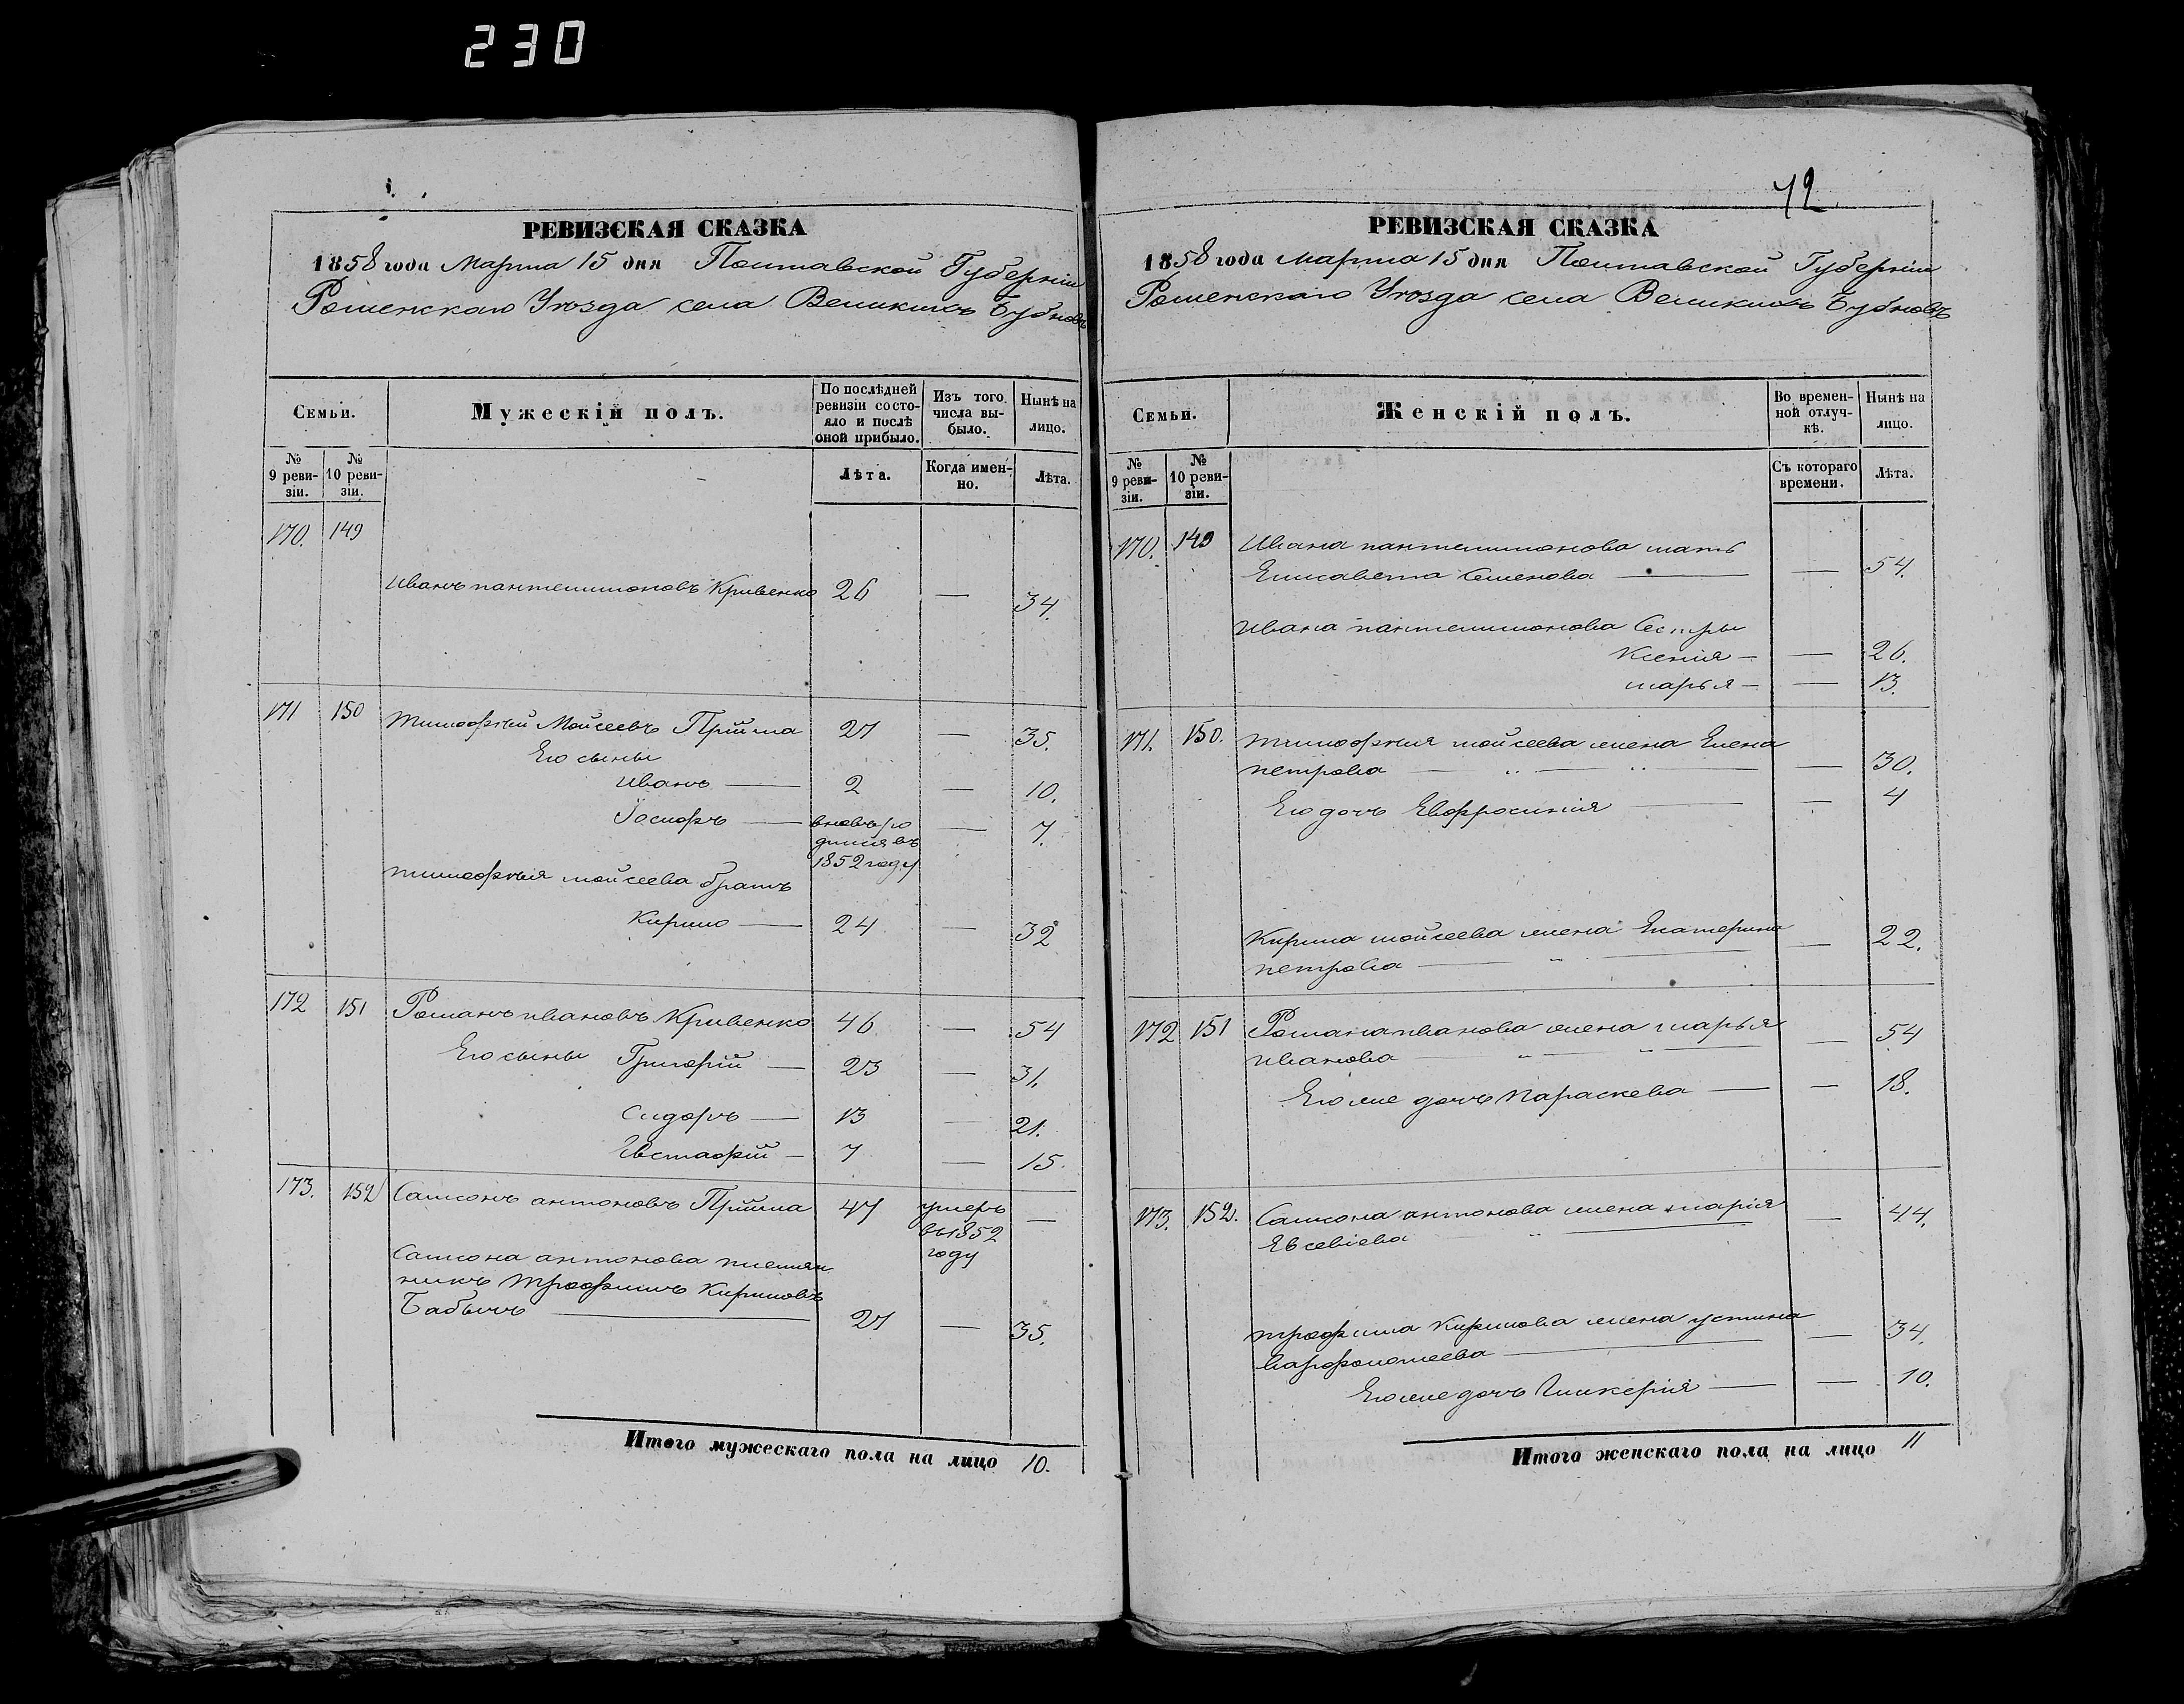 230
РЕВИЗСКАЯ СКАЗКА
1858 года Марта 15 дня Полтавской Губерніи
Роменскаго Уѣзда села Великихъ Бубновъ
Семьи.
Мужескій полъ.
По послѣдней ревизіи состояло и послѣ оной прибыло.
Изъ того числа выбыло.
Нынѣ на лицо.
№ 9 ревизіи.
№ 10 ревизіи.
Лѣта.
Когда именно.
Лѣта.
170. 149
Иванъ пантелимоновъ Кривенко 26 — 34.
171 150 Тимофѣй Мойсеевъ Прійма 27 — 35.
Его сыны
Иванъ — 2 — 10.
Іосифъ — вновь ро — 7.
дился въ
1852 году
тимофѣя мойсеева братъ
Кирило — 24 — 32
172 151 Романъ ивановъ Кривенко 46 — 54
Его сыны Григорій — 23 — 31.
Сидоръ — 13 — 21.
Евстафій — 7 — 15.
173. 152 Самсонъ антоновъ Прійма 47 умеръ —
въ 1852
году
Самсона антонова племян
никъ Трофимъ Кириловъ
Бабичъ — 27 — 35.
Итого мужескаго пола на лицо 10.
72
РЕВИЗСКАЯ СКАЗКА
1858 года Марта 15 дня Полтавской Губерніи
Роменскаго Уѣзда села Великихъ Бубновъ
Семьи.
Женскій полъ.
Во временной отлучкѣ.
Нынѣ на лицо.
№ 9 ревизіи.
№ 10 ревизіи.
Съ котораго времени.
Лѣта.
170. 149 Ивана пантелимонова мать
Елисавета Семенова — — 54.
Ивана пантелимонова Сестры
Ксенія — — 26.
марья — — 13.
171. 150. тимофѣя мойсеева жена Елена
петрова — " — " — — 30.
Его дочь Евфросинія — — 4
Кирила мойсеева жена Екатерина — 22.
петрова — " —
172 151 Романа иванова жена марья — 54
иванова " — " —
Его же дочь параскева — — 18.
173. 152. Самсона антонова жена марія — 44.
Евсевіева — " —
трофима Кирилова жена устина — 34.
варфоломеева —
Его же дочь Гликерія — — 10.
Итого женскаго пола на лицо 11